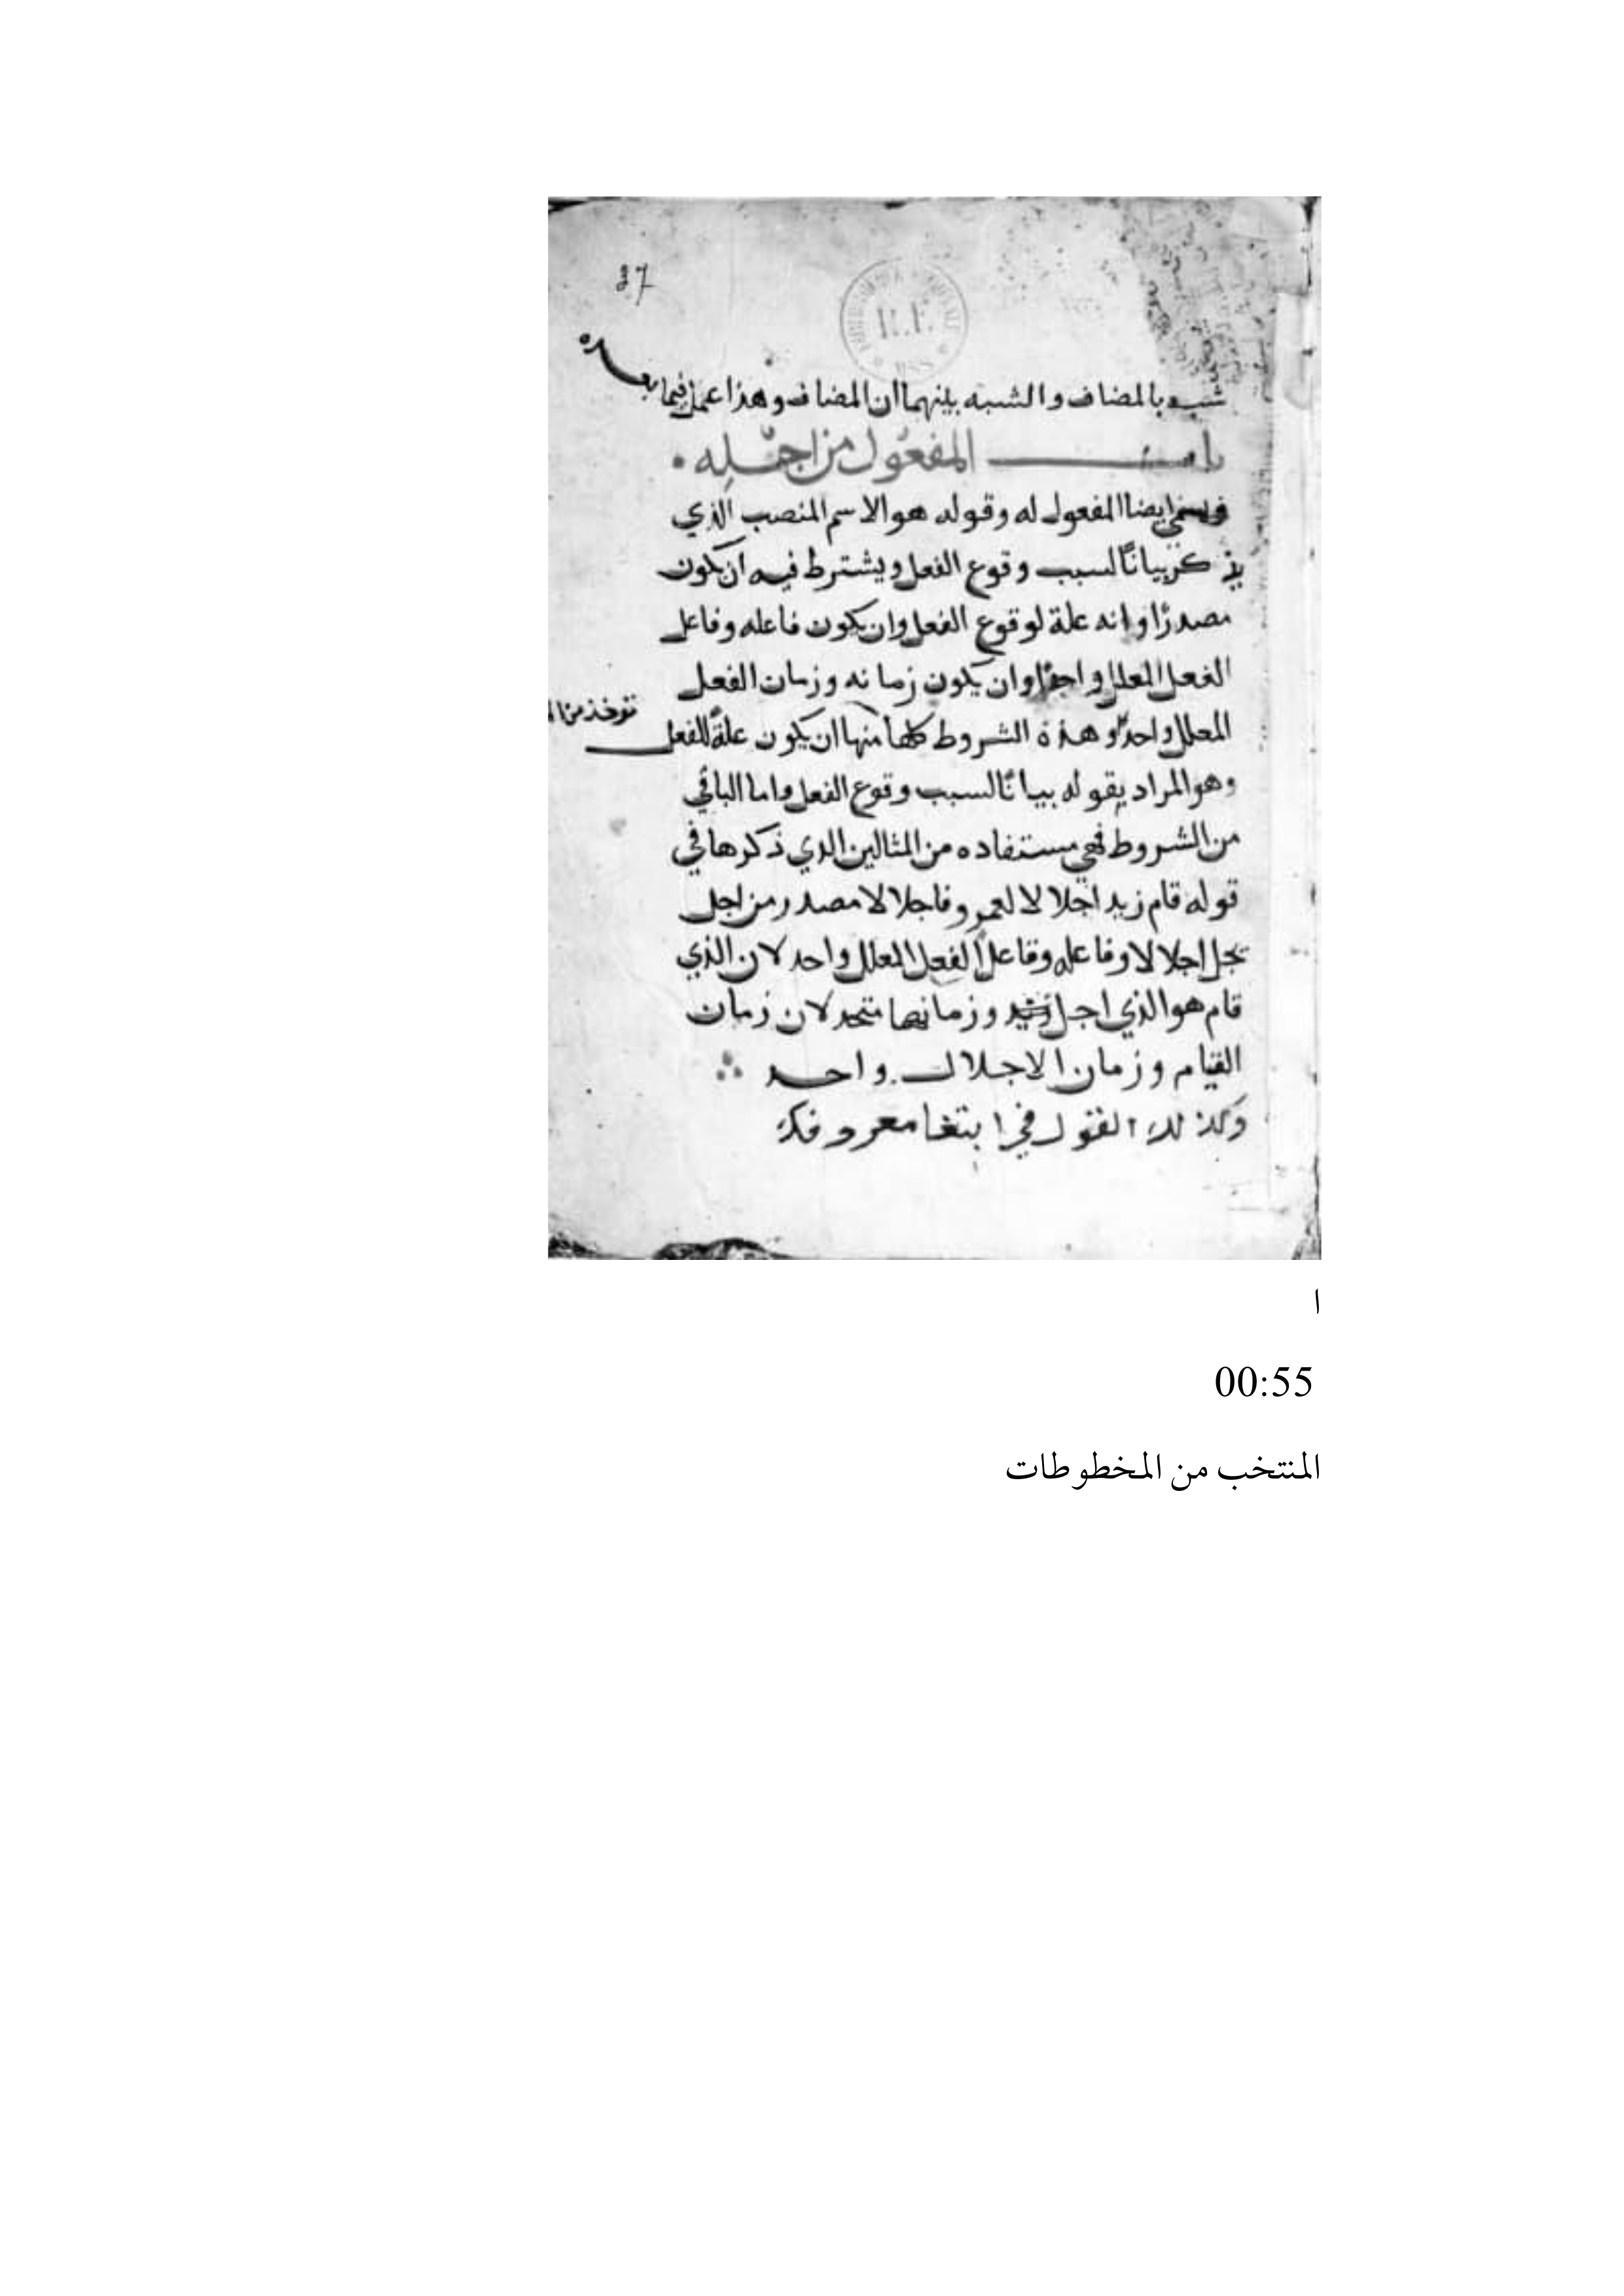 87
شبيه بالمضاف والشبه بينهما ان المضاف وهذا عمل فيما بعده
باب المفعول من اجله
ويسمى ايضا المفعول له وقوله هو الاسم المنصب الذي
يذكر بيانًا لسبب وقوع الفعل ويشترط فيه ان يكون
مصدرًا وانه علة لوقوع الفعل وان يكون فاعله وفاعل
الفعل المعلل واحدًا وان يكون زمانه وزمان الفعل
المعلل واحد وهذه الشروط كلها منها ان يكون علةً للفعل
توخذ من
وهو المراد بقوله بيانًا لسبب وقوع الفعل واما الباقي
من الشروط فهي مستفاده من المثالين الذي ذكرها في
قوله قام زيد اجلالا لعمرو فاجلالا مصدر من اجل
يجل اجلالا وفاعله وفاعل الفعل المعلل واحد لان الذي
قام هو الذي اجل وزمانهما متحد لان زمان
القيام وزمان الاجلال واحد
وكذلك القول في ابتغا معروفك
ا
00:55
المنتخب من المخطوطات